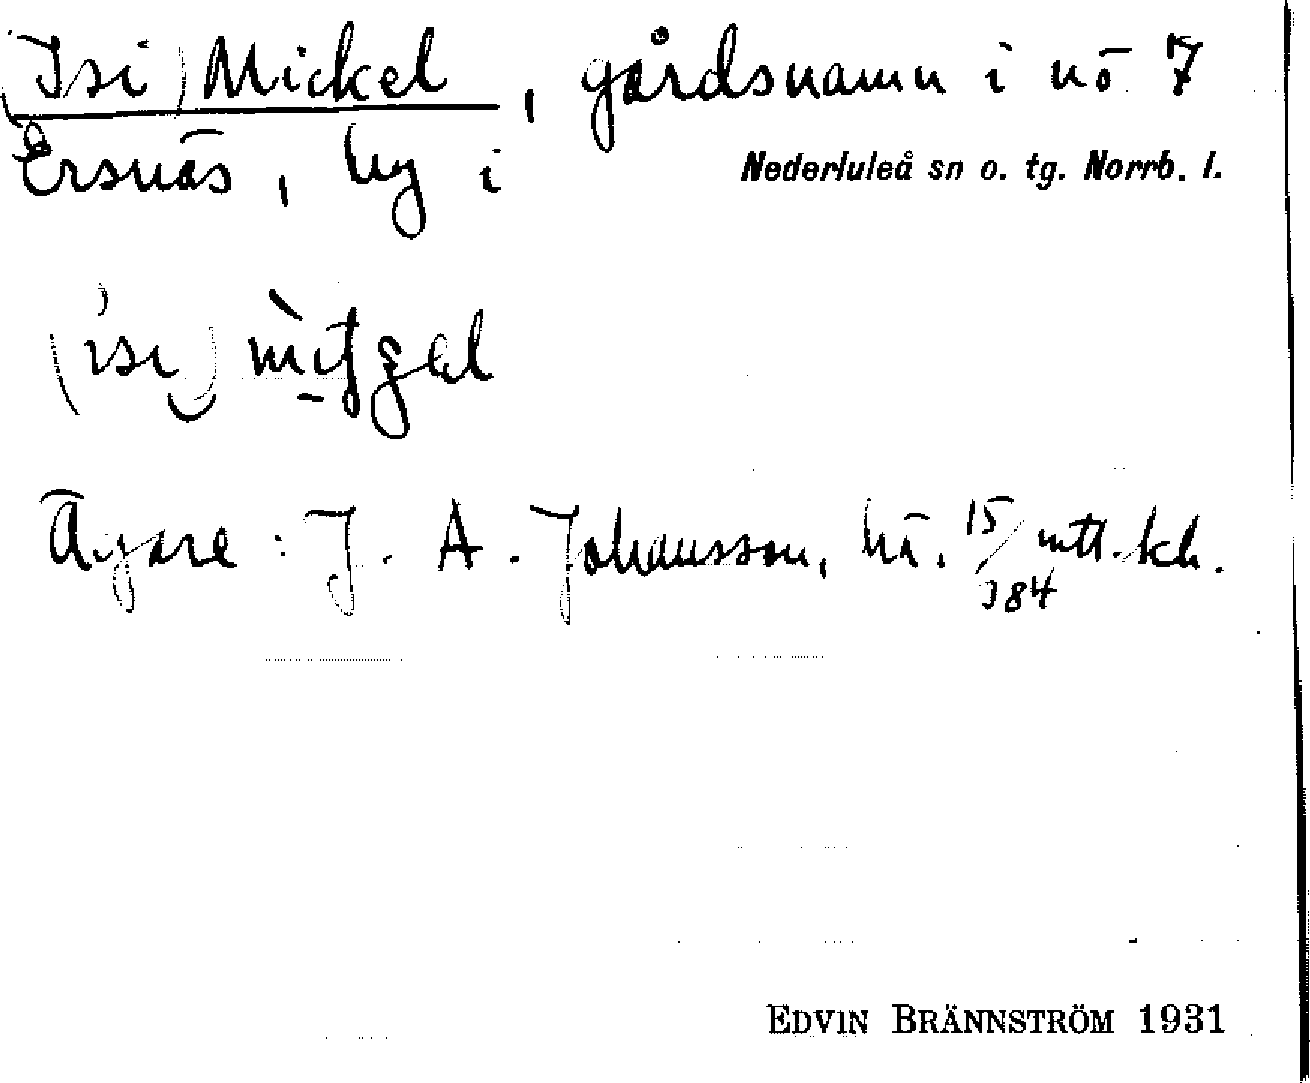 (Isi) Mickel, gårdsnamn i nö 7
Ersnäs, by i Nederluleå sn o. tg. Norrb. l.
Ägare: J. A. Johansson, hä. 15/384 mtl. kh.
EDVIN BRÄNNSTRÖM 1931